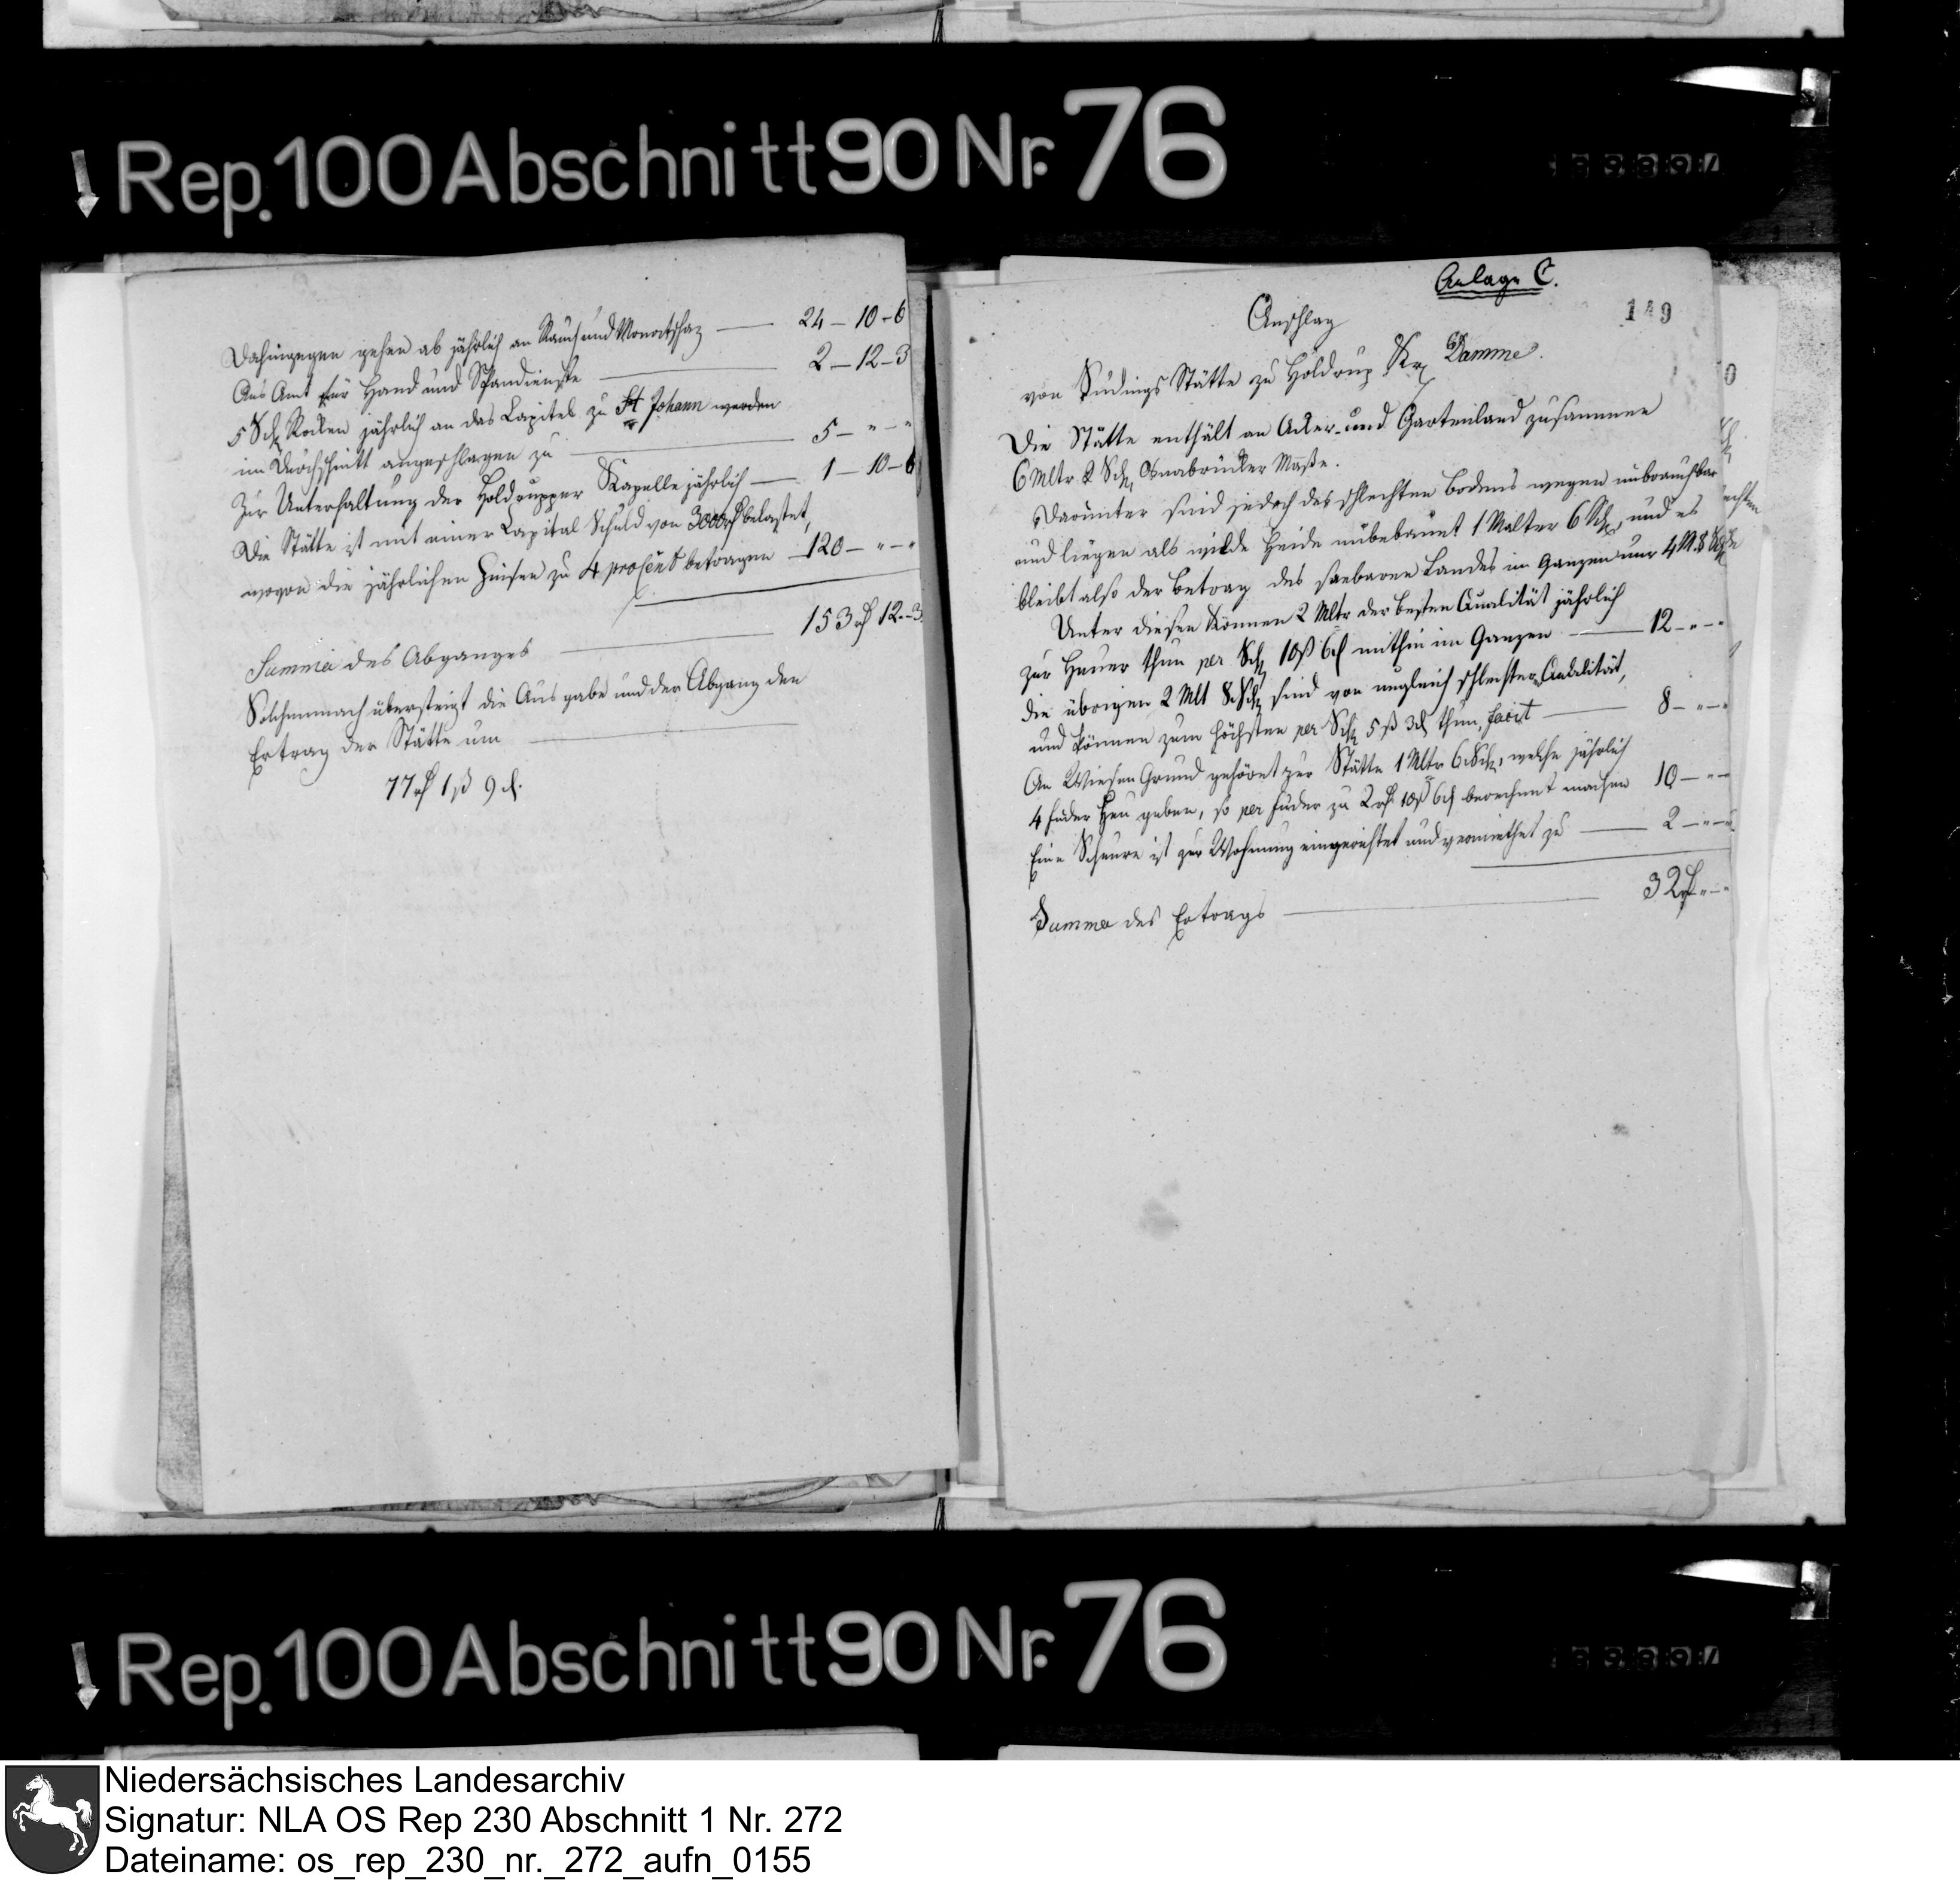 Rep. 100 Abschnitt 90 Nr. 76
Dahingegen gehen ab jährlich an Rauch und Monatschaz — 24 — 10 - 6
Ans Amt für Hand und Spandienste — 2 — 12 - 3
5 Sch Rocken jährlich an das Capitel zu St Johann werden
im Durchschnitt angeschlagen zu — 5 — " — "
Zur Unterhaltung der Holdrupper Kapelle jährlich — 1 — 10 - 6
Die Stätte ist mit einer Capital Schuld von 3000 rt belastet,
wovon die jährlichen Zinsen zu 4 proCent betragen — 120 — " — "
Summa des Abganges — 153 rt 12 - 3
Solchemnach übersteigt die Ausgabe und der Abgang den
Ertrag der Stätte um —
77 rt 1 ß 9 d.
Anlage C.
149
Anschlag
von Sudings Stätte zu Holdrup Krz Damme.
Die Stätte enthält an Acker- und Gartenland zusammen
6 Mltr 2 Sch, Osnabrücker Maße.
Darunter sind jedoch des schlechten Bodens wegen unbrauchbar
und liegen als wilde Heide unbebaut 1 Malter 6 Sch, und es
bleibt also der Betrag des saebaren Landes im Ganzen nur 4 M 8 Sch
Unter diesen können 2 Mltr der besten Qualität jährlich
zur Heuer thun per Sch 10 ß 6 d mithin im Ganzen — 12 — " — "
die übrigen 2 Mlt 8 Sch sind von ungleich schlechter Qualität,
und können zum höchsten per Sch 5 ß 3 d thun, facit — 8 — " — "
An Wiesen Grund gehöret zur Stätte 1 Mltr 6 Sch, welche jährlich
4 Fuder Heu geben, so per Fuder zu 2 rt 10 ß 6 d berechnet machen 10 — " — "
Eine Scheure ist zur Wohnung eingerichtet und vermiethet zu — 2 — " — "
Summa des Ertrags — 32 rt " — "
Rep. 100 Abschnitt 90 Nr. 76
Niedersächsisches Landesarchiv
Signatur: NLA OS Rep 230 Abschnitt 1 Nr. 272
Dateiname: os_rep_230_nr._272_aufn_0155